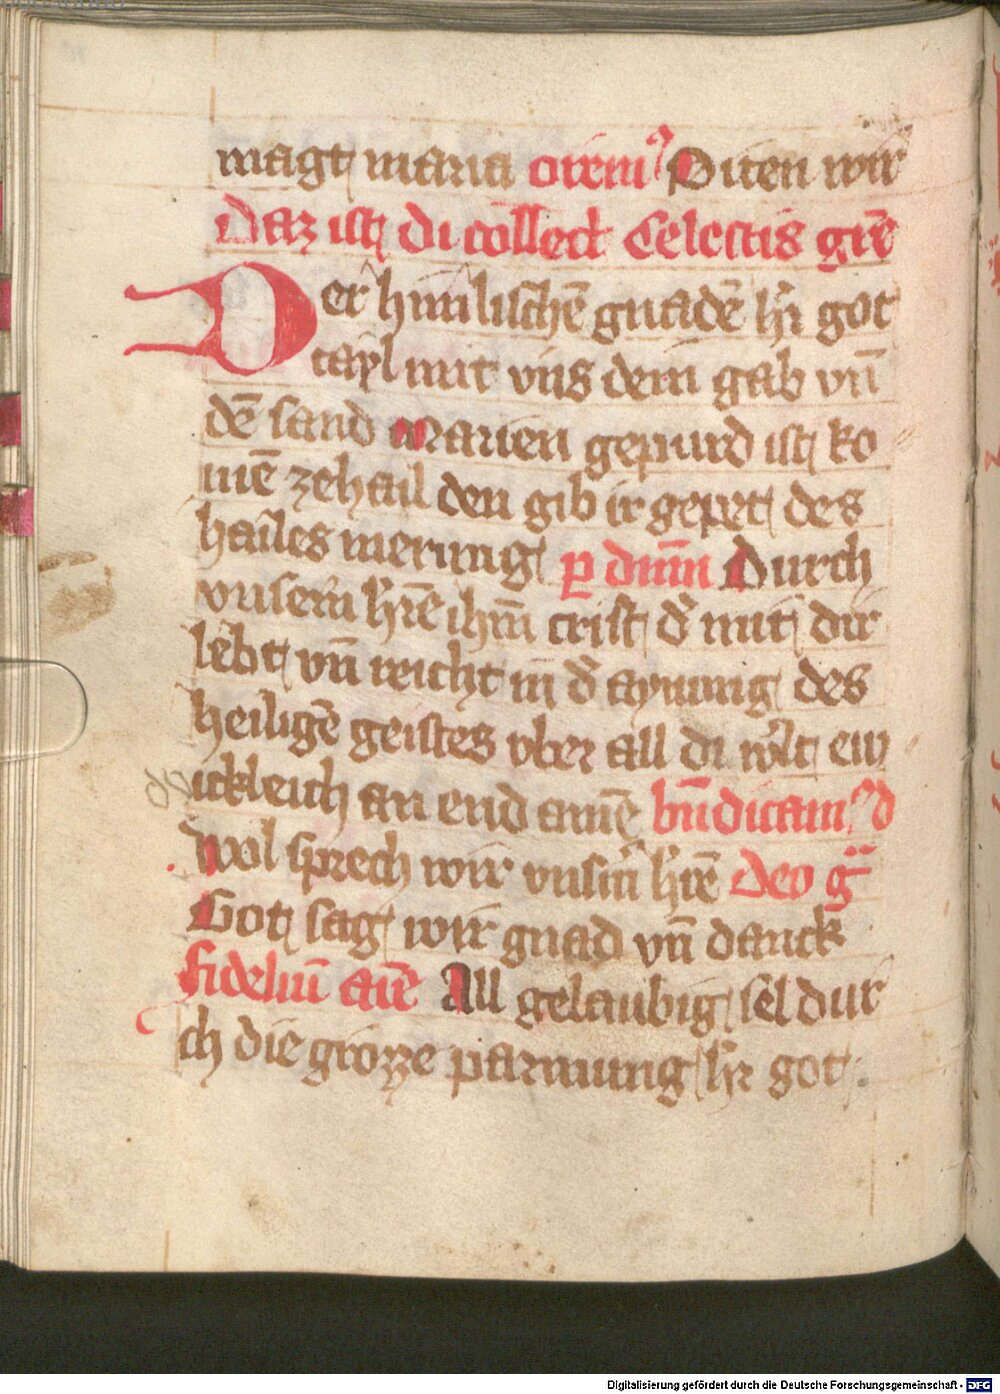 magt maria orem⁹ Biten wir
Daz ist di collect Celestis gr̄e
Der himlischē gnadē h̓r got
tayl mit vns dein gab vn̄
dē sand Marien gepurd ist ko
mē ze hail den gib ir gepet des
hailes merung p dnm̄ Durch
vnsern h̓rē ihm̄ crist d̓ mit dir
lebt vn̄ reicht in̄ d̓ aynung des
heiligē geistes vber all di w̓lt ew
ickleich an end amē bn̄dicam⁹ d
Wol sprech wir vnsm̄ h̓rē deo g̈
Got sag wir gnad vn̄ danck
fideliū aīe All gelaubig sel dur
ch die grozze parmung h̓r got
Digitalisierung gefördert durch die Deutsche Forschungsgemeinschaft - DFG